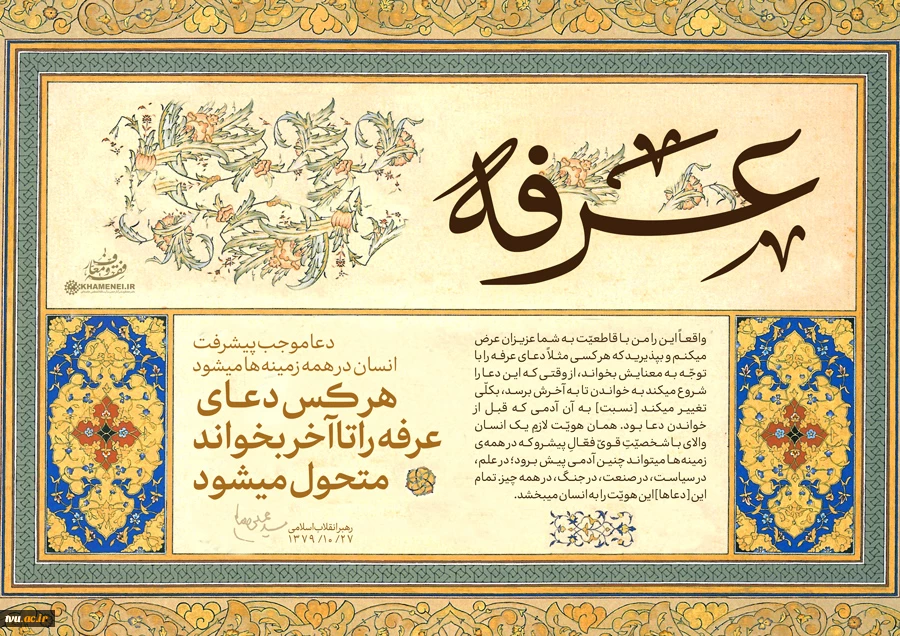 عرفه
فقه و معارف
KHAMENEI.IR
دعا موجب پیشرفت
انسان در همه زمینه‌ها میشود
هر کس دعای
عرفه را تا آخر بخواند
متحول میشود
رهبر انقلاب اسلامی
۱۳۷۹/۱۰/۲۷
واقعاً این را من با قاطعیّت به شما عزیزان عرض
میکنم و بپذیرید که هر کسی مثلاً دعای عرفه را با
توجّه به معنایش بخواند، از وقتی که این دعا را
شروع میکند به خواندن تا به آخرش برسد، بکلّی
تغییر میکند [نسبت] به آن آدمی که قبل از
خواندن دعا بود. همان هویّت لازم یک انسان
والای با شخصیّتِ قویّ فعّالِ پیشرو که در همه‌ی
زمینه‌ها میتواند چنین آدمی پیش برود؛ در علم،
در سیاست، در صنعت، در جنگ، در همه چیز. تمام
این [دعاها] این هویّت را به انسان میبخشد.
tvu.ac.ir